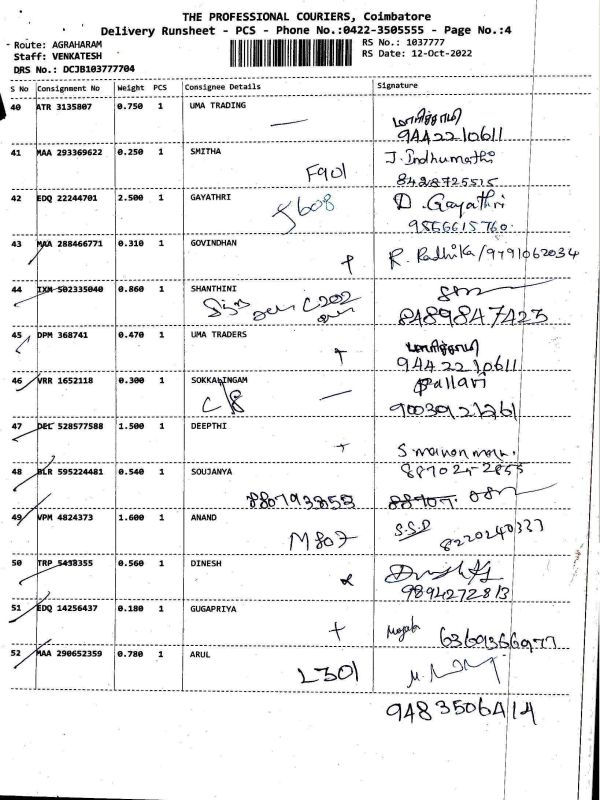 THE PROFESSIONAL COURIERS, Coimbatore
Delivery Runsheet - PCS - Phone No.:0422-3505555 - Page No.:4
Route: AGRAHARAM
RS No.: 1037777
Staff: VENKATESH
RS Date: 12-Oct-2022
DRS No.: DCJB103777704
S No Consignment No Weight PCS Consignee Details Signature
40 ATR 3135807 0.750 1 UMA TRADING
9442210611
41 MAA 293369622 0.250 1 SMITHA J. Indhumathi
F901 8428725515
42 EDQ 22244701 2.500 1 GAYATHRI D. Gayathri
G608 9566615760
43 MAA 288466771 0.310 1 GOVINDHAN R. Radhika/9791062034
44 IXM 502335040 0.860 1 SHANTHINI
C202 8489847423
45 DPM 368741 0.470 1 UMA TRADERS
9442210611
46 VRR 1652118 0.300 1 SOKKALINGAM Pallavi
C/8 9003921261
47 DEL 528577588 1.500 1 DEEPTHI
48 BLR 595224481 0.540 1 SOUJANYA
49 VPM 4824373 1.600 1 ANAND S.S.P
M807 8220240337
50 TRP 5438355 0.560 1 DINESH
9894272813
51 EDQ 14256437 0.180 1 GUGAPRIYA
6369366977
52 MAA 290652359 0.780 1 ARUL
L301
9483506414